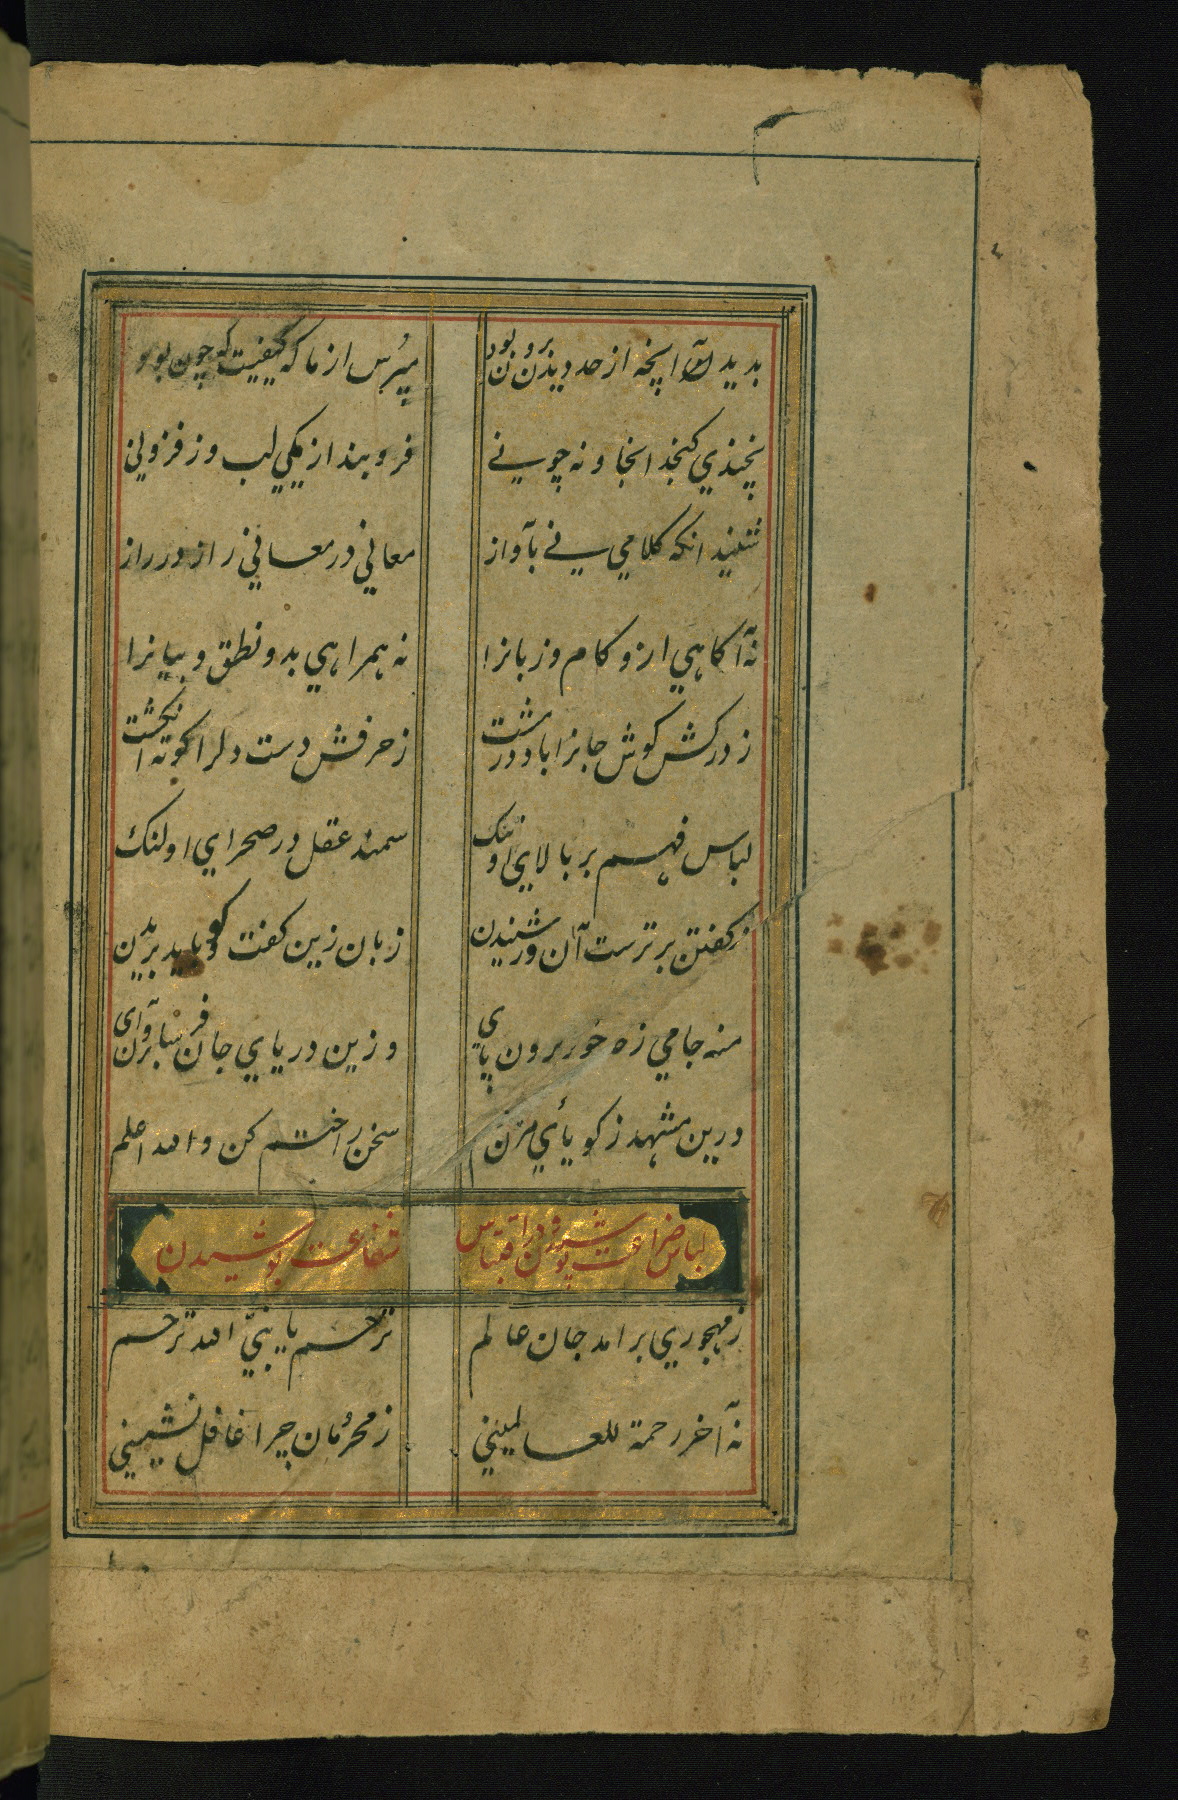 بدید آنچه از حد دیدن برون بود مپرس از ما که کیفیت که چون بود
نچندی کنجد انجا و نه چونی فرو بند از یکی لب وز فزونی
شنید انکه کلامی نی بآواز معانی در معانی راز در راز
نه آکاهی ازو کام و زبانرا نه همراهی بدو نطق و بیانرا
ز درکش کوش جانرا باد در مشت ز حرفش دست دلرا کوته انکشت
لباس فهم بر بالای او تنک سمند عقل در صحرای او لنک
ز کفتن برترست آن وز شنیدن زبان زین کفت کو باید بریدن
منه جامی زه خود برون پای وزین دریای جان فرسا برون آی
درین مشهد ز کویائی مزن دم سخن را ختم کن والله اعلم
لباس ضراعت پوشیدن و در اقتباس شفاعت کوشیدن
ز مهجوری برامد جان عالم ترحم یا نبی الله ترحم
نه آخر رحمة للعالمینی ز محرومان چرا غافل نشینی